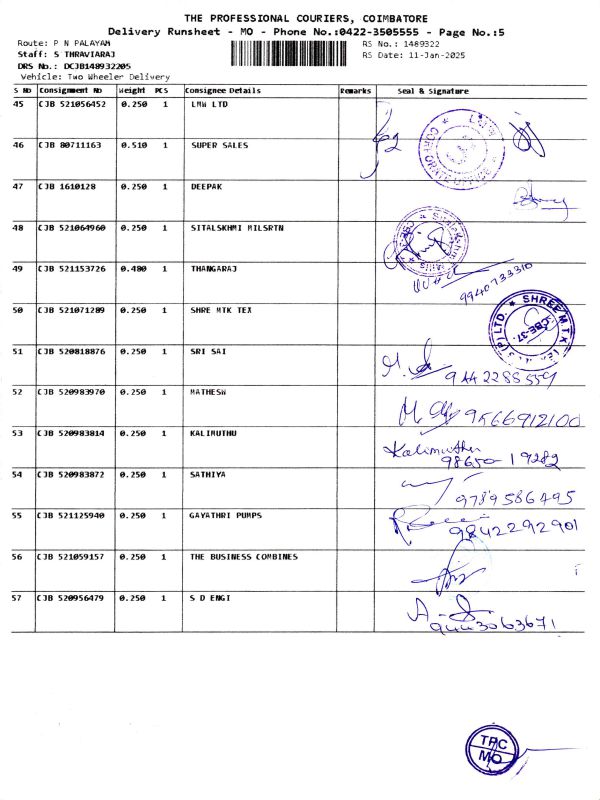 THE PROFESSIONAL COURIERS, COIMBATORE
Delivery Runsheet - MO - Phone No.:0422-3505555 - Page No.:5
Route: P N PALAYAM
Staff: S THRAVIARAJ
DRS No.: DCJB148932205
Vehicle: Two Wheeler Delivery
RS No.: 1489322
RS Date: 11-Jan-2025
S No Consignment No Weight PCS Consignee Details Remarks Seal & Signature
45 CJB 521056452 0.250 1 LMW LTD
CORPORATE OFFICE
46 CJB 80711163 0.510 1 SUPER SALES
47 CJB 1610128 0.250 1 DEEPAK
48 CJB 521064960 0.250 1 SITALSKHMI MILSRTN
49 CJB 521153726 0.480 1 THANGARAJ
9940733310
50 CJB 521071289 0.250 1 SHRE MTK TEX
SHREE M.T.K
(P) LTD.
CBE-37.
51 CJB 520818876 0.250 1 SRI SAI
9442285559
52 CJB 520983970 0.250 1 MATHESW
9566912100
53 CJB 520983814 0.250 1 KALIMUTHU
Kalimuthu
98650-19282
54 CJB 520983872 0.250 1 SATHIYA
9789586495
55 CJB 521125940 0.250 1 GAYATHRI PUMPS
9842292901
56 CJB 521059157 0.250 1 THE BUSINESS COMBINES
57 CJB 520956479 0.250 1 S D ENGI
9443063671
TPC
MO